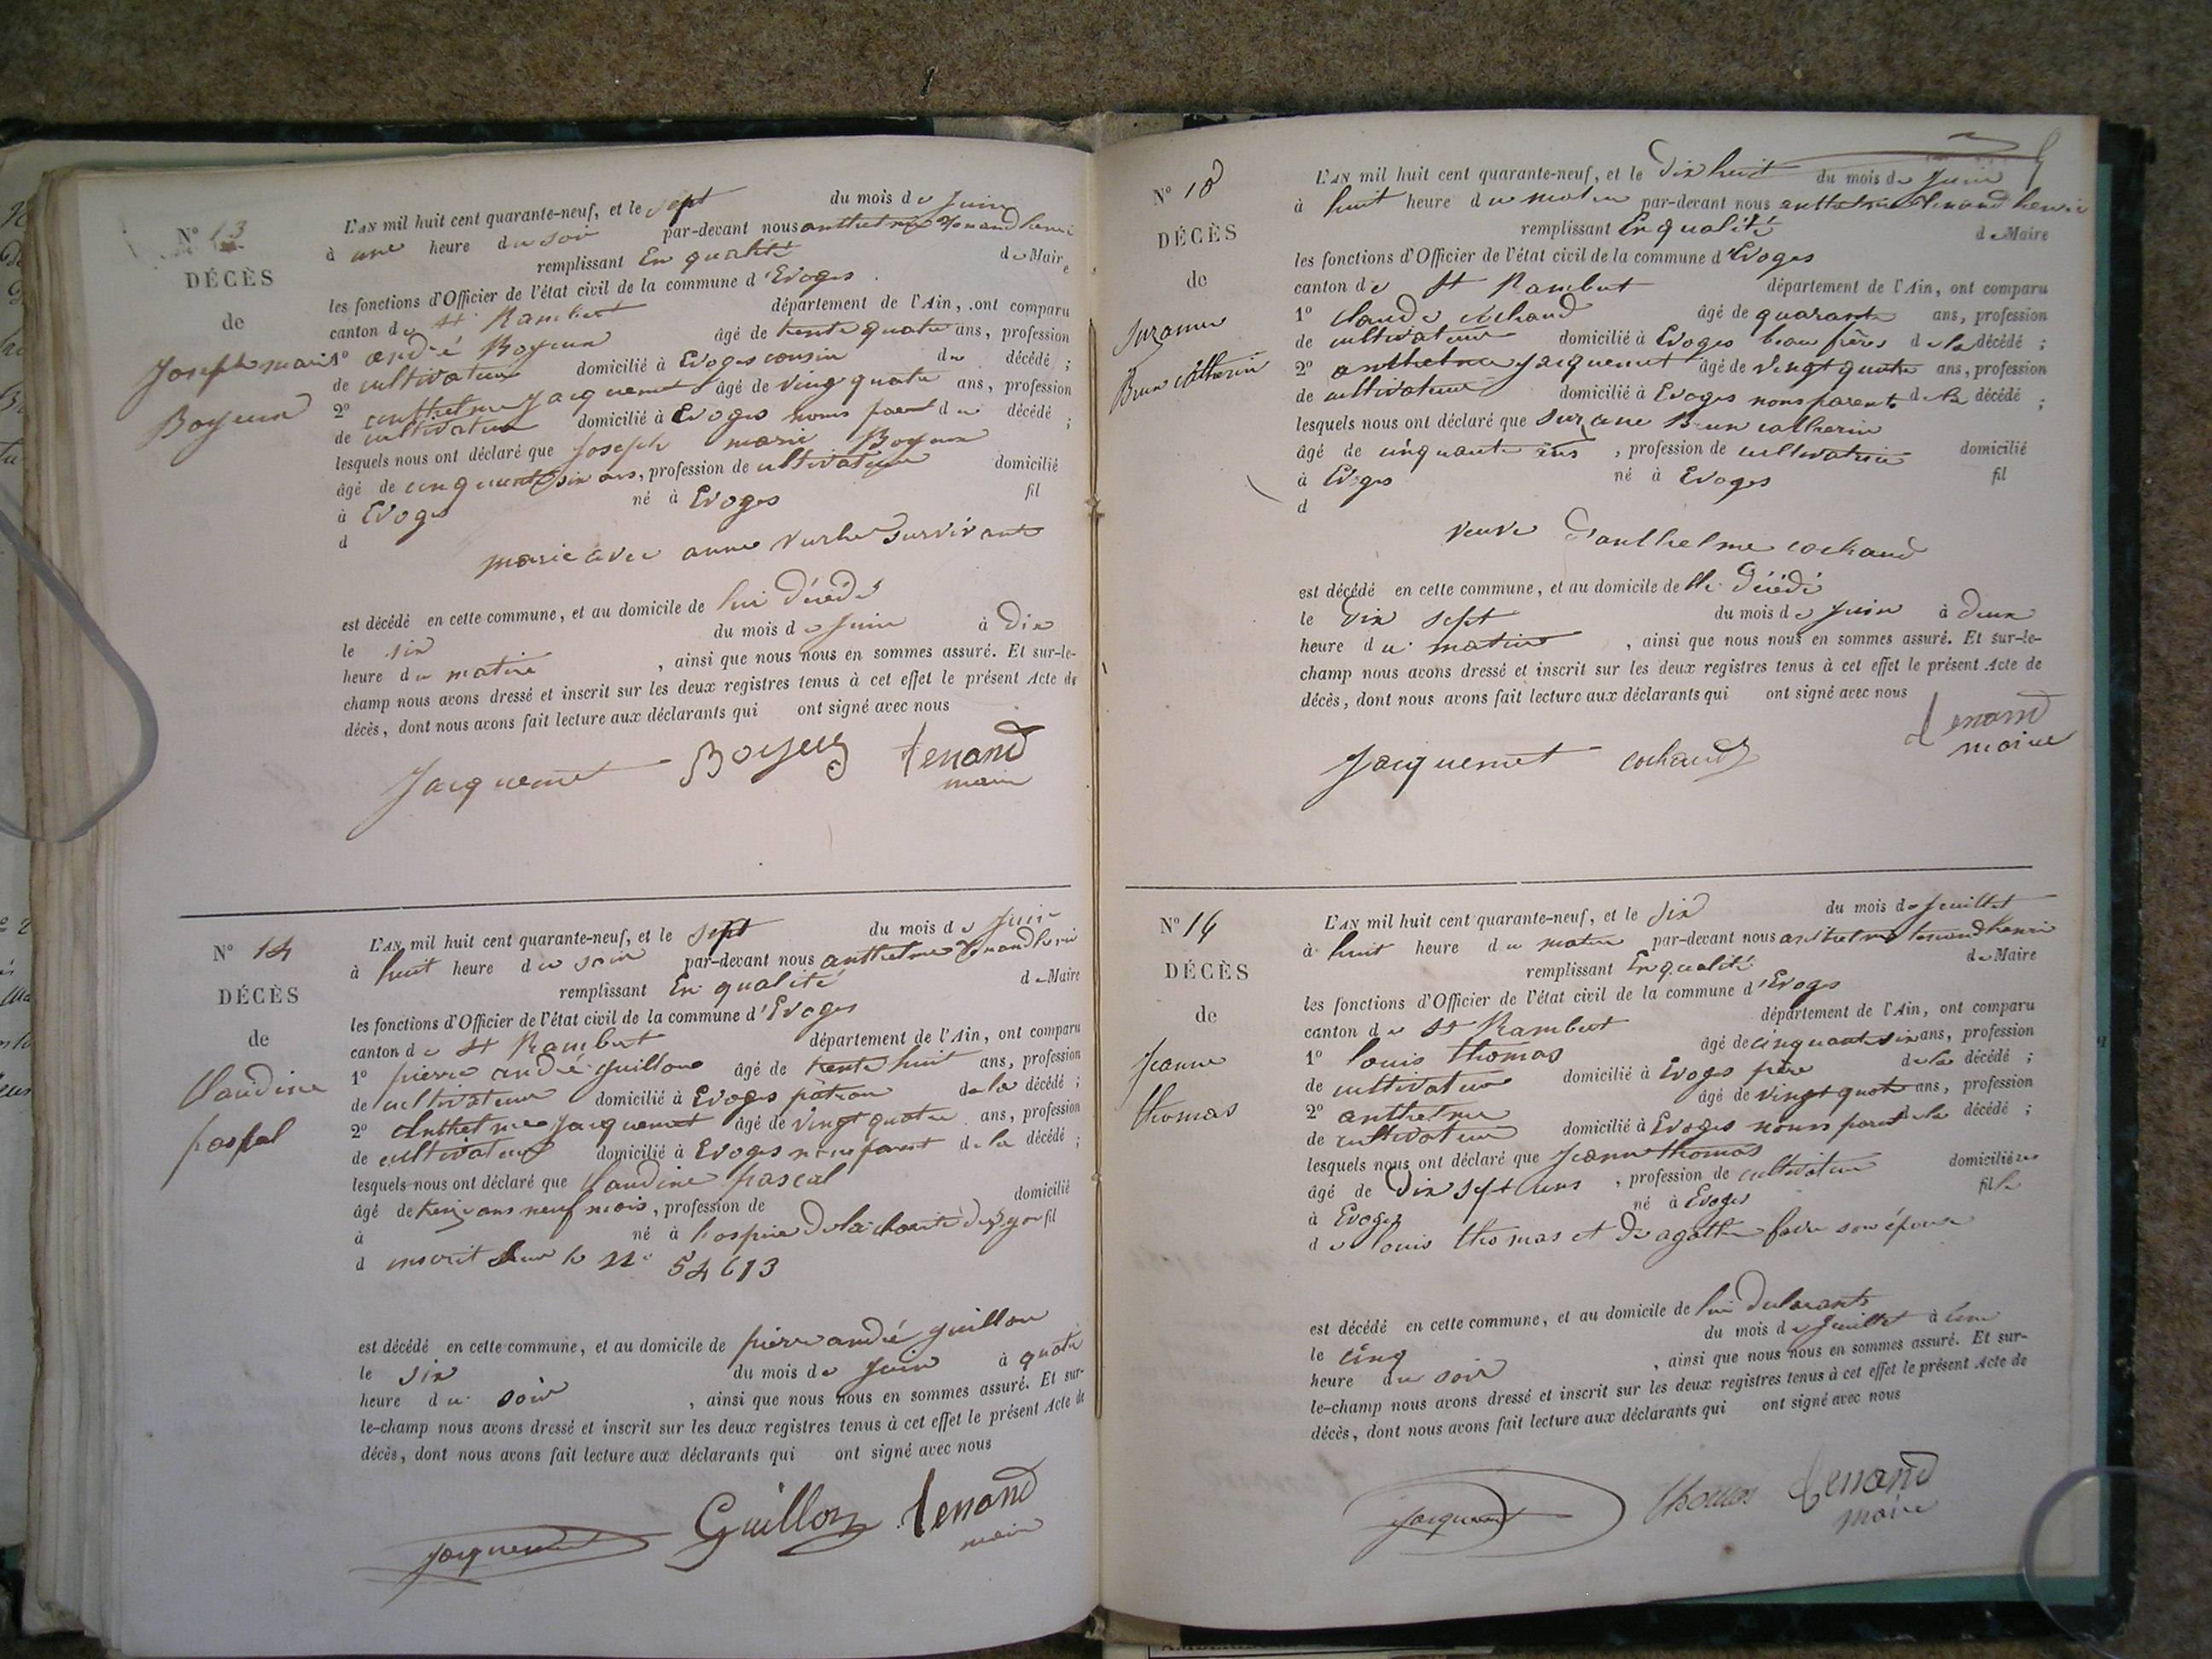 N° 13
DÉCÈS
de
Joseph marie
Boyeux
L'AN mil huit cent quarante-neuf, et le sept du mois de Juin
à une heure du soir par-devant nous anthelme tenand henri
remplissant En qualité de Maire
les fonctions d'Officier de l'état civil de la commune d'Evoges
canton de St Rambert département de l'Ain, ont comparu
1° andré Boyeux âgé de trente quatre ans, profession
de cultivateur domicilié à Evoges cousin du décédé ;
2° anthelme Jacquemet âgé de ving quatre ans, profession
de cultivateur domicilié à Evoges nomis parent du décédé ;
lesquels nous ont déclaré que Joseph marie Boyeux
âgé de cinquante six ans, profession de cultivateur domicilié
à Evoges né à Evoges fil
d
marié avec anne survivante
est décédé en cette commune, et au domicile de lui décédé
le six du mois de Juin à Dix
heure du matin , ainsi que nous nous en sommes assuré. Et sur-le-
champ nous avons dressé et inscrit sur les deux registres tenus à cet effet le présent Acte de
décès, dont nous avons fait lecture aux déclarants qui ont signé avec nous
Jacquemet Boyeux tenand
maire
N° 14
DÉCÈS
de
Claudine
pascal
L'AN mil huit cent quarante-neuf, et le sept du mois de Juin
à huit heure du soir par-devant nous anthelme tenand henri
remplissant En qualité de Maire
les fonctions d'Officier de l'état civil de la commune d'Evoges
canton de St Rambert département de l'Ain, ont comparu
1° pierre andré guillon âgé de trente huit ans, profession
de cultivateur domicilié à Evoges patron de la décédé ;
2° Anthelme Jacquemet âgé de vingt quatre ans, profession
de cultivateur domicilié à Evoges parent de la décédé ;
lesquels nous ont déclaré que Claudine pascal
âgé de treize ans neuf mois, profession de domicilié
à né à l'ospice De la charité de Lyon fil
d inscrit Sur le N° 54613
est décédé en cette commune, et au domicile de pierre andré guillon
le six du mois de Juin à quatre
heure du soir , ainsi que nous nous en sommes assuré. Et sur-
le-champ nous avons dressé et inscrit sur les deux registres tenus à cet effet le présent Acte de
décès, dont nous avons fait lecture aux déclarants qui ont signé avec nous
Jacquemet Guillon tenand
maire
N° 18
DÉCÈS
de
Suzanne
Brun Catherin
L'AN mil huit cent quarante-neuf, et le Dix huit du mois de Juin
à huit heure du matin par-devant nous anthelme tenand henri
remplissant En qualité de Maire
les fonctions d'Officier de l'état civil de la commune d'Evoges
canton de St Rambert département de l'Ain, ont comparu
1° Claude cochaud âgé de quarante ans, profession
de cultivateur domicilié à Evoges beau frères de la décédé ;
2° anthelme Jacquemet âgé de vingt quatre ans, profession
de cultivateur domicilié à Evoges nons parents de la décédé ;
lesquels nous ont déclaré que Suzanne Brun catherin
âgé de cinquante ans , profession de cultivatrice domicilié
à Evoges né à Evoges fil
d
veuve D'anthelme cochaud
est décédé en cette commune, et au domicile de Décédé
le Dix sept du mois de Juin à deux
heure du matin , ainsi que nous nous en sommes assuré. Et sur-le-
champ nous avons dressé et inscrit sur les deux registres tenus à cet effet le présent Acte de
décès, dont nous avons fait lecture aux déclarants qui ont signé avec nous
Jacquemet cochaud tenand
maire
N° 14
DÉCÈS
de
Jeanne
thomas
L'AN mil huit cent quarante-neuf, et le Six du mois de Jeuillet
à huit heure du matin par-devant nous anthelme tenand henri
remplissant En qualité de Maire
les fonctions d'Officier de l'état civil de la commune d'Evoges
canton de St Rambert département de l'Ain, ont comparu
1° louis thomas âgé de cinquante six ans, profession
de cultivateur domicilié à Evoges père de la décédé ;
2° anthelme âgé de vingt quatre ans, profession
de cultivateur domicilié à Evoges parent de la décédé ;
lesquels nous ont déclaré que Jeanne thomas
âgé de Dix sept ans , profession de cultivateur domicilié
à Evoges né à Evoges fille
de louis thomas et De agathe favre son épouse
est décédé en cette commune, et au domicile de lui Declarant
le cinq du mois de Jeuillet à une
heure du soir , ainsi que nous nous en sommes assuré. Et sur-
le-champ nous avons dressé et inscrit sur les deux registres tenus à cet effet le présent Acte de
décès, dont nous avons fait lecture aux déclarants qui ont signé avec nous
Jacquemet thomas tenand
maire